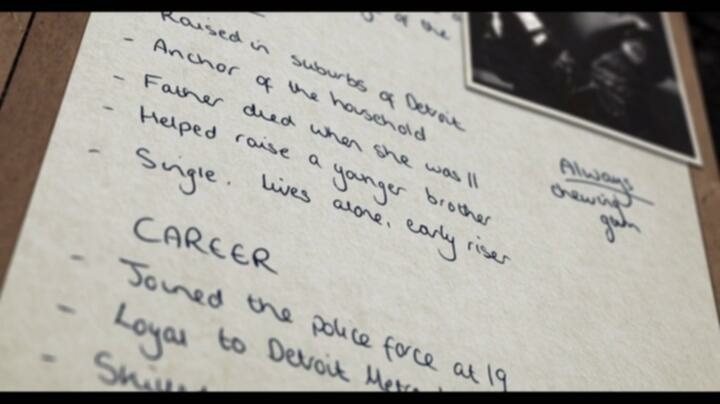 of the
Raised in suburbs of Detroit
- Anchor of the household
- Father died when she was 11
- Helped raise a yanger brother
- Single. Lives alone, early riser
Always
chewing
gum
CAREER
- Joined the police force at 19
- Loyal to Detroit Metro
-